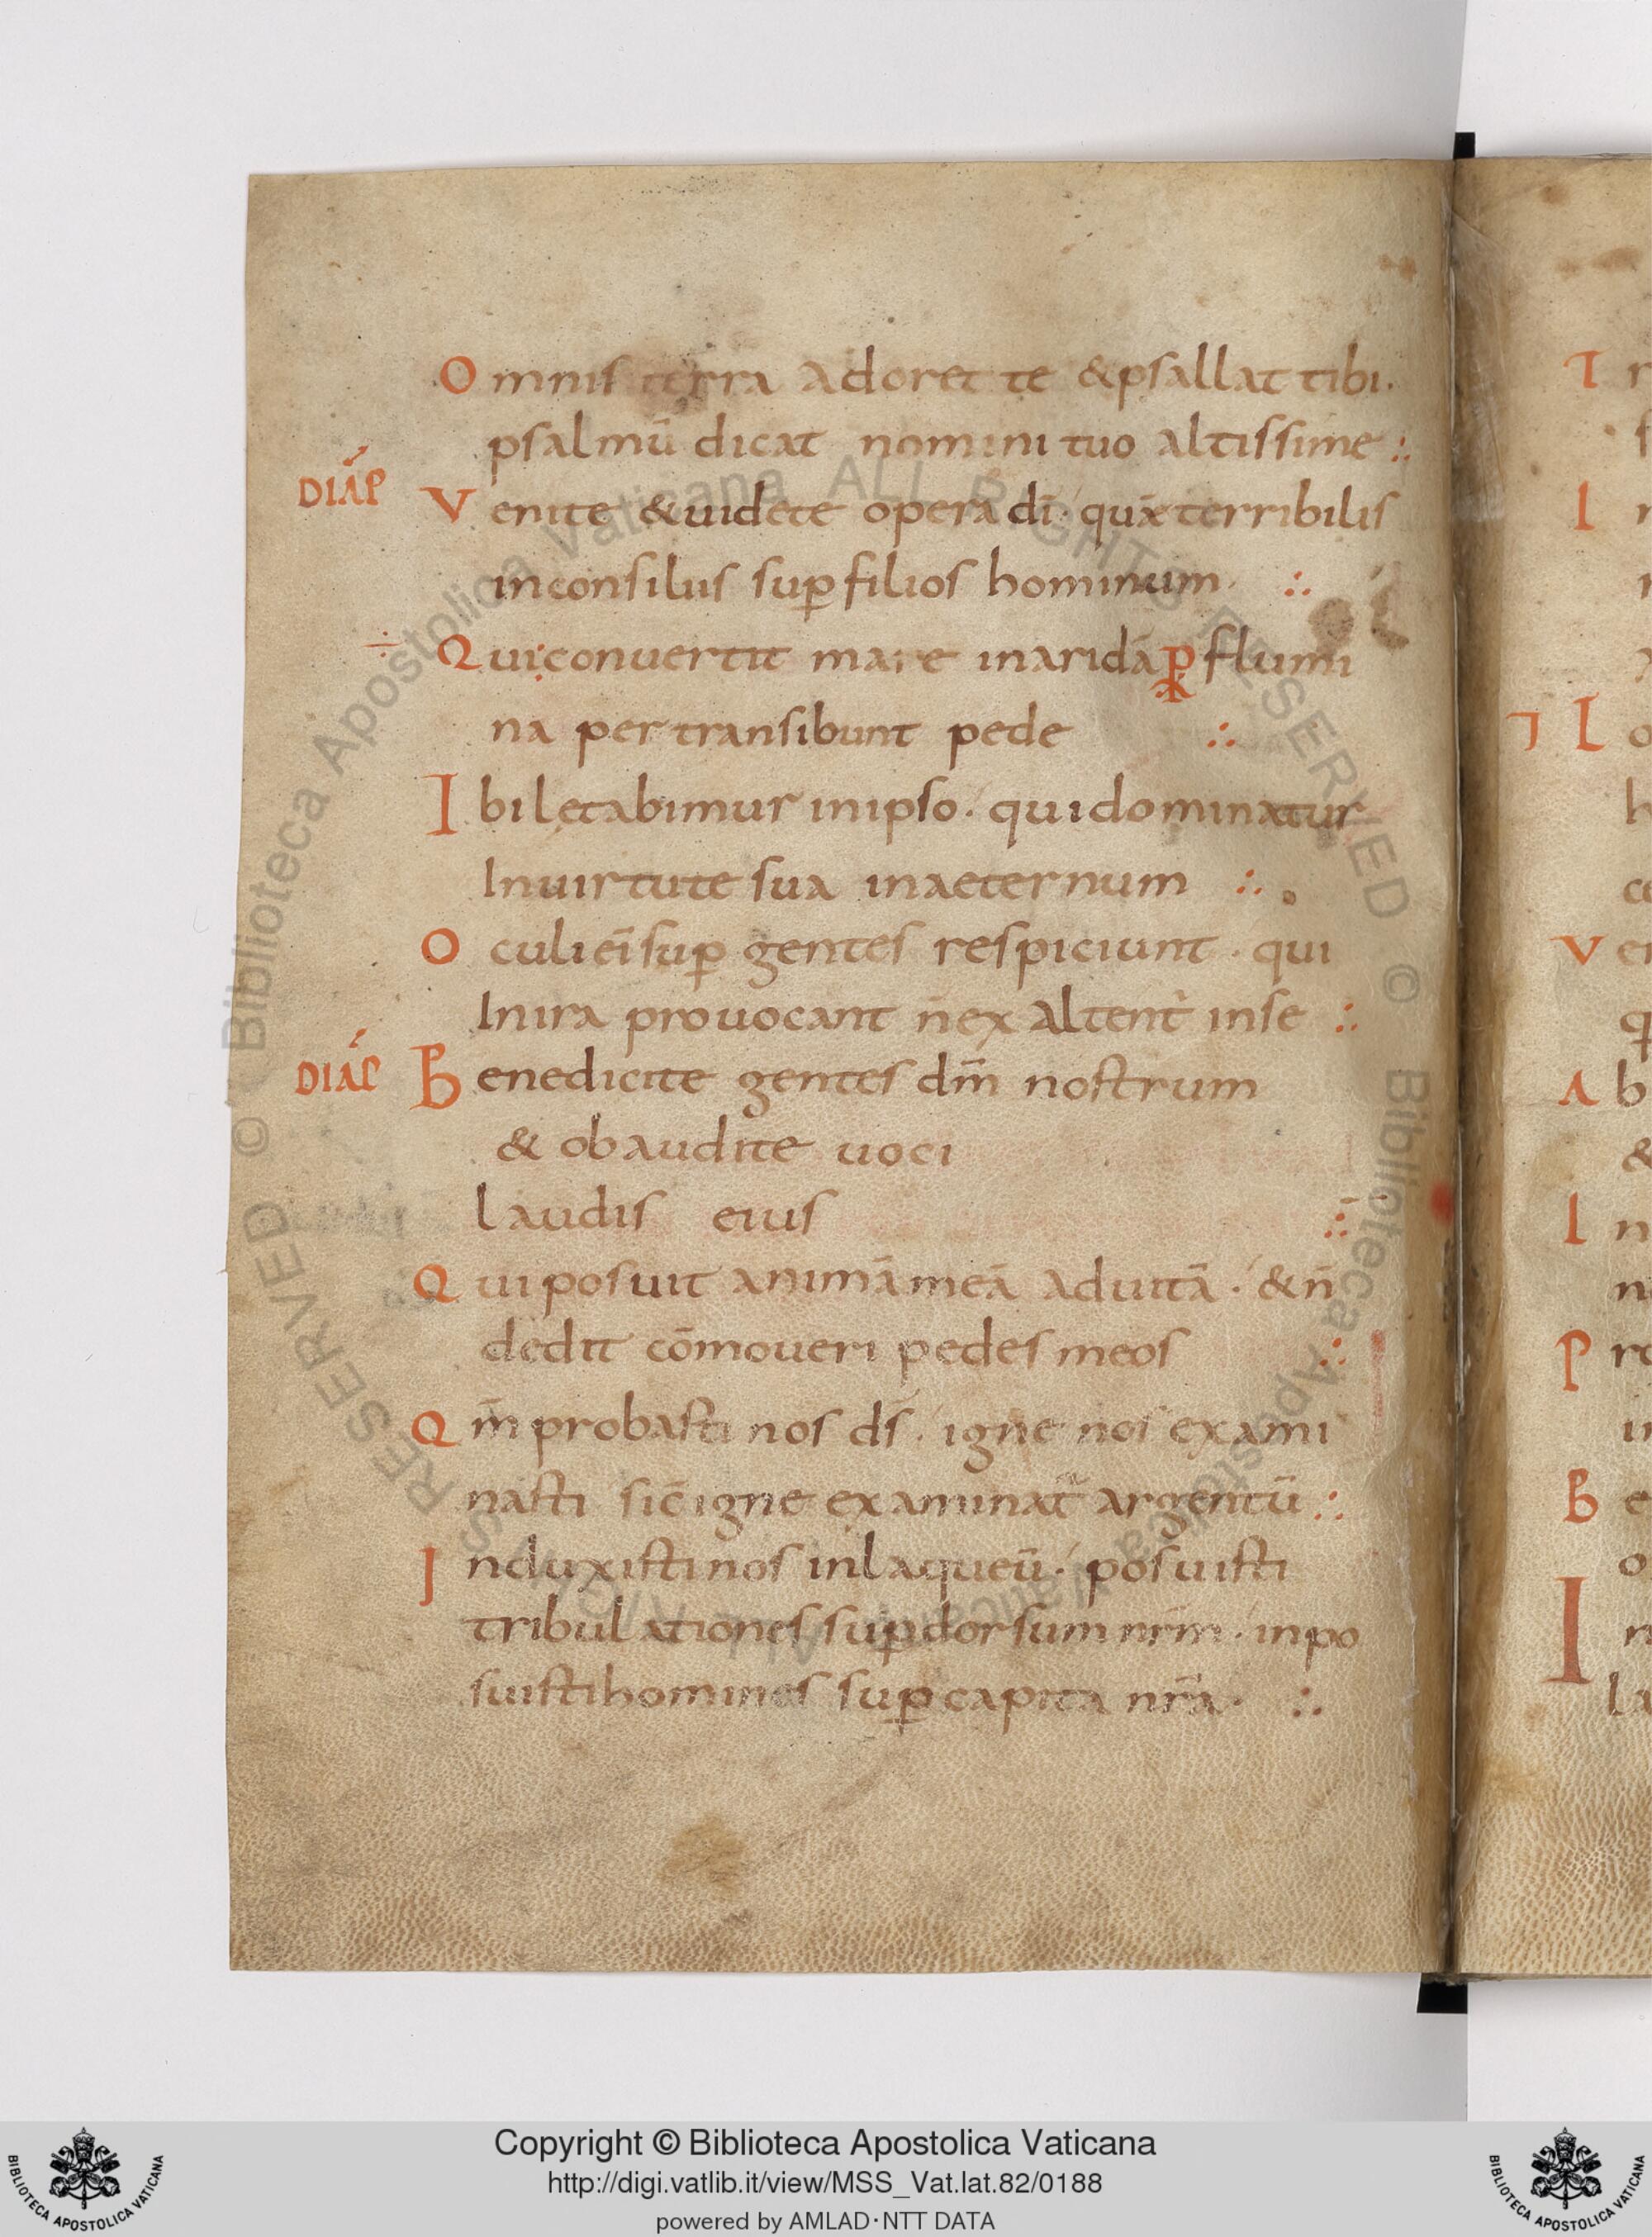 Omnis terra adoret te & psallat tibi.
psalmū dicat nomini tuo altissime
DIAP
Venite & uidete opera dī quā terribilis
in consiliis sup filios hominum
÷ Qui conuertit mare in aridā p flumi
na per transibunt pede
Ibi letabimur in ipso. qui dominatur
In uirtute sua in aeternum
Oculi eī sup gentes respiciunt. qui
In ira prouocant n̄ exaltent in se
DIAP
Benedicite gentes dm̄ nostrum
& obaudite uoci
laudis eius
Qui posuit animā meā ad uitā. & n̄
dedit cōmoueri pedes meos
Qm̄ probasti nos ds̄. igne nos exami
nasti sic igne examinat argentū
Induxisti nos in laqueū. posuisti
tribulationes sup dorsum nrm̄. inpo
suisti homines sup capita nrā.
Copyright © Biblioteca Apostolica Vaticana
http://digi.vatlib.it/view/MSS_Vat.lat.82/0188
powered by AMLAD·NTT DATA
BIBLIOTECA APOSTOLICA VATICANA
BIBLIOTECA APOSTOLICA VATICANA
© Biblioteca Apostolica Vaticana ALL RIGHTS RESERVED
© Biblioteca Apostolica Vaticana ALL RIGHTS RESERVED